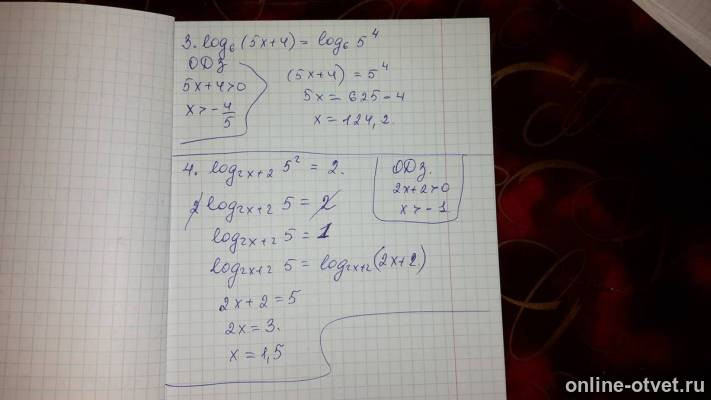 3. log₆(5x+4) = log₆ 5⁴
ОДЗ
5x+4>0
x>-4/5
(5x+4) = 5⁴
5x = 625-4
x = 124,2.
4. log₂ₓ₊₂ 5² = 2.
ОДЗ.
2x+2>0
x>-1
2 log₂ₓ₊₂ 5 = 2
log₂ₓ₊₂ 5 = 1
log₂ₓ₊₂ 5 = log₂ₓ₊₂(2x+2)
2x+2 = 5
2x = 3.
x = 1,5
online-otvet.ru